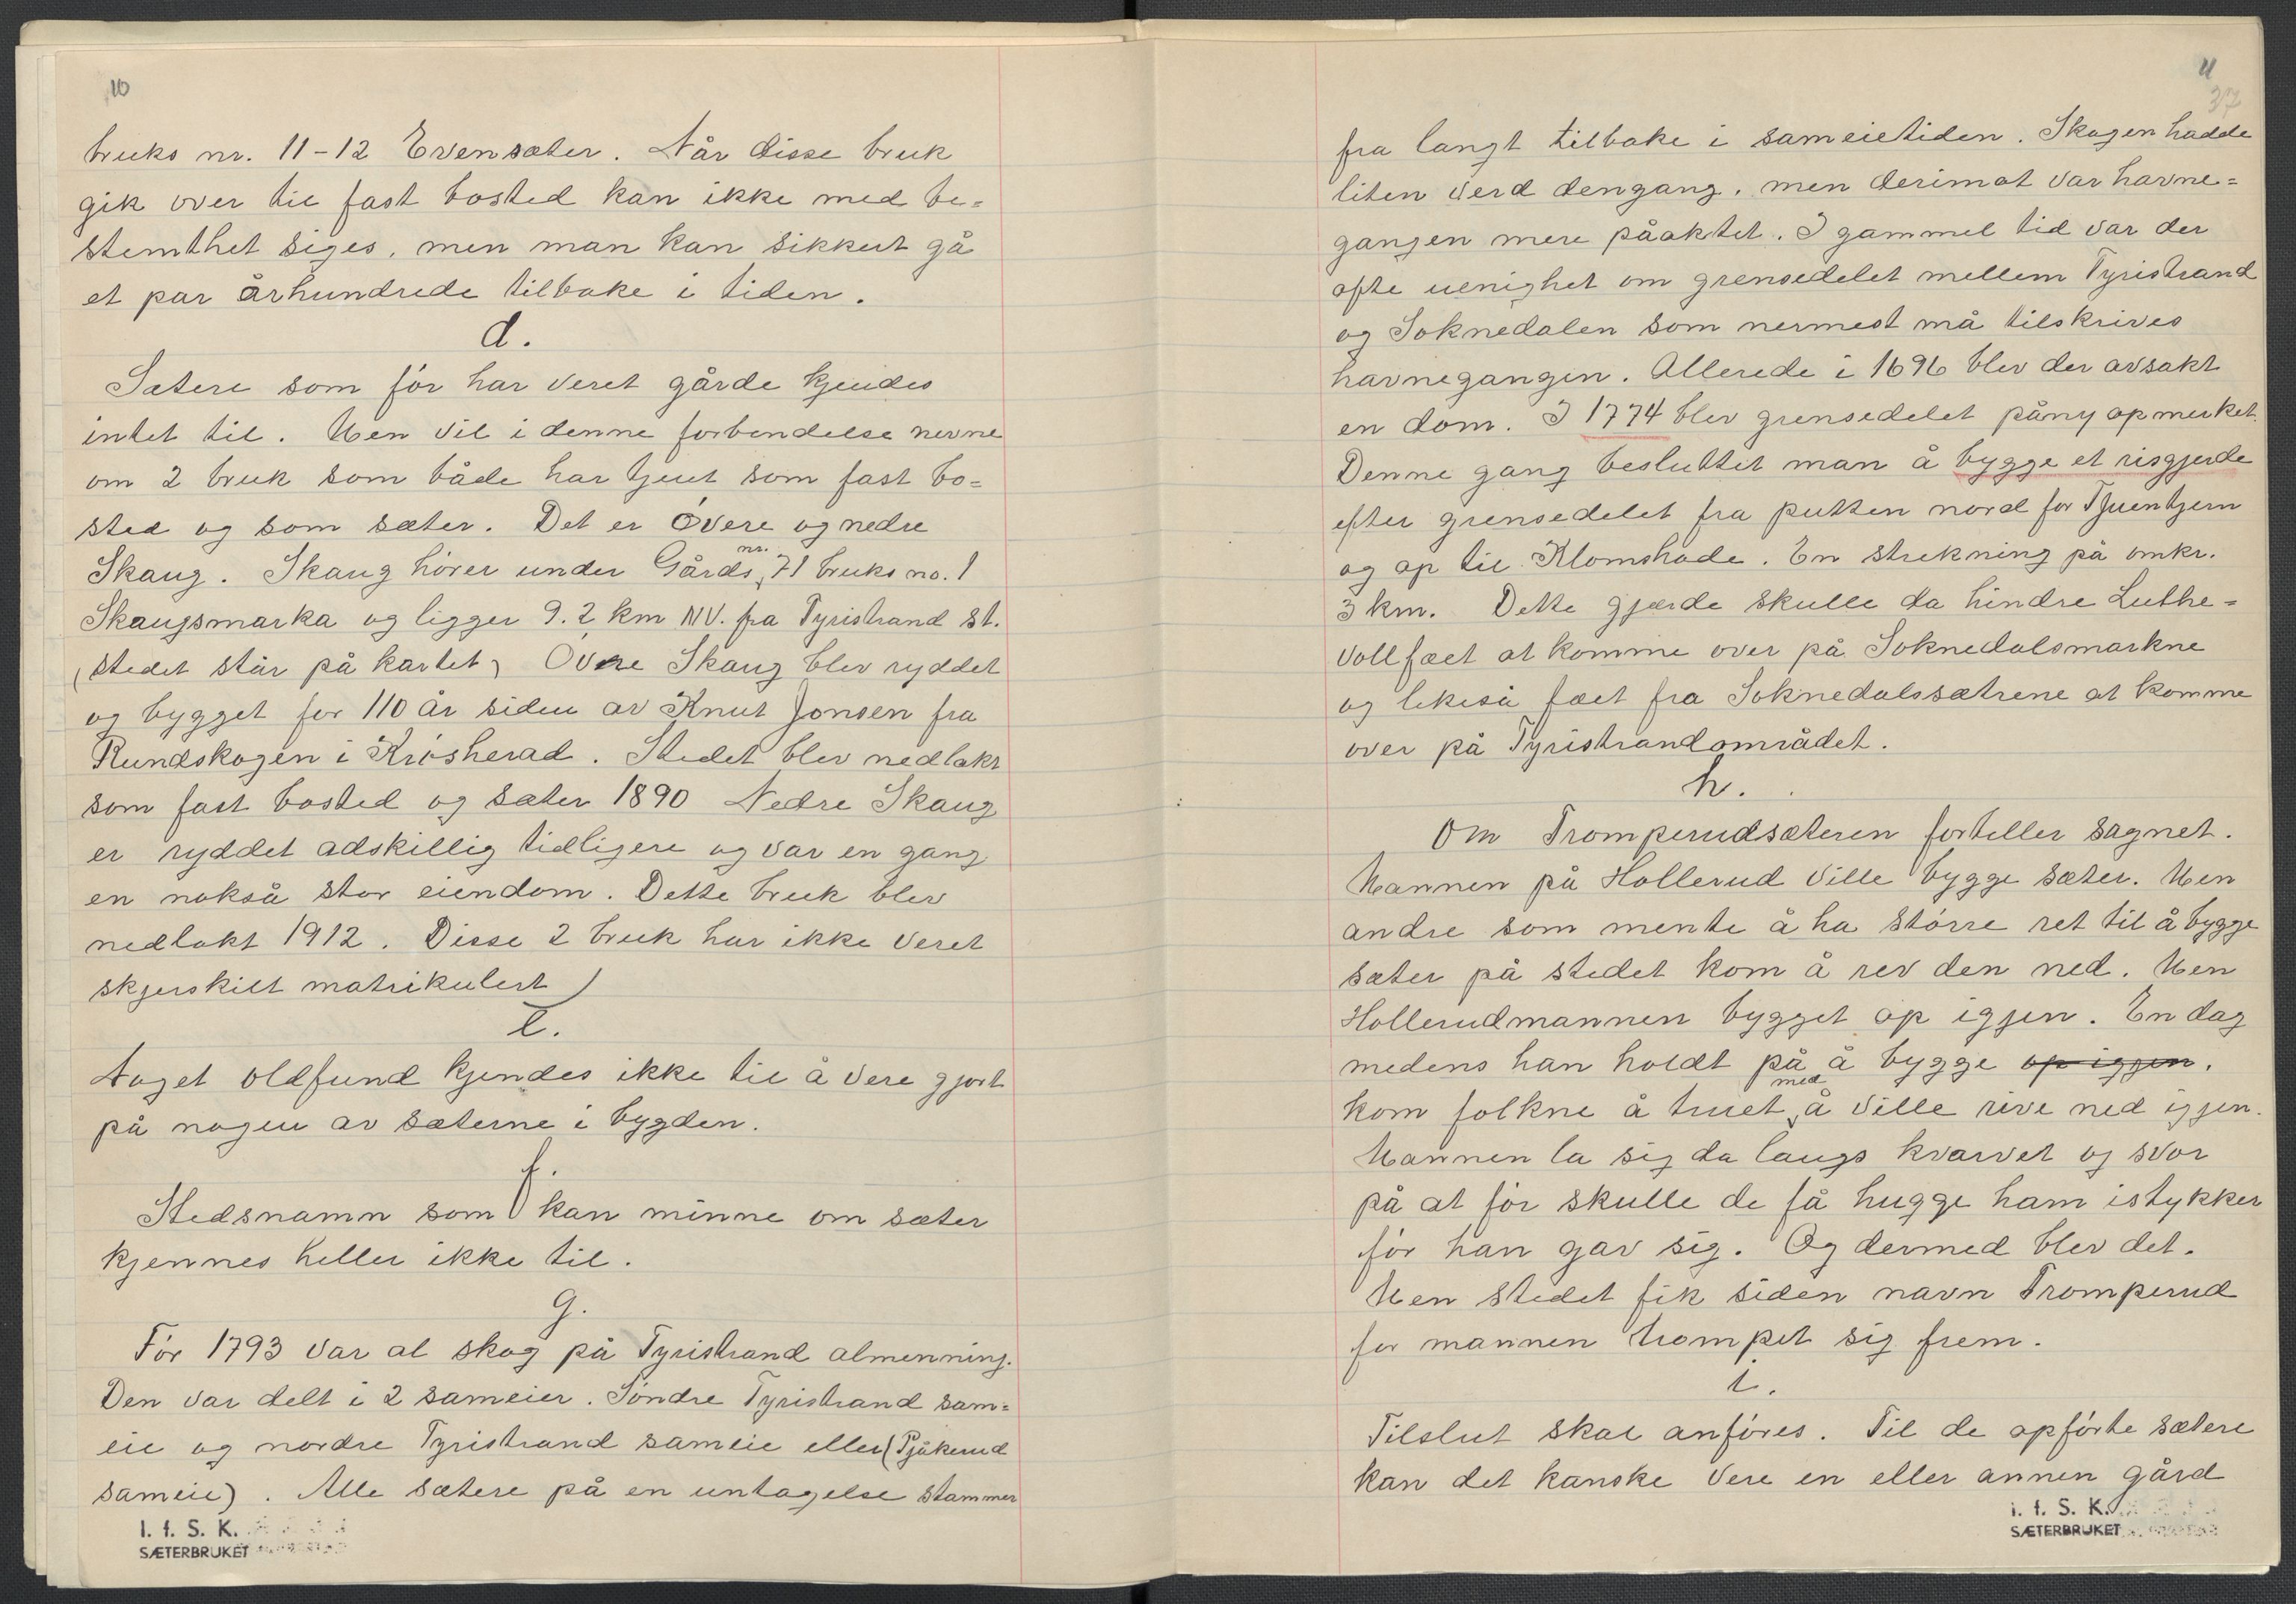 10
bruks nr. 11-12 Evensæter. Når disse bruk
gik over til fast bosted kan ikke med be=
stemthet siges, men man kan sikkert gå
et par århundrede tilbake i tiden.
d.
Sætere som før har veret gårde kjendes
intet til. Men vil i denne forbendelse nevne
om 2 bruk som både har tjent som fast bo=
sted og som sæter. Det er Øvere og nedre
Skaug. Skaug hører under Gårds nr. 71 bruks no. 1
Skaugsmarka og ligger 9.2 km NV. fra Tyristrand st.
(stedet står på kartet) Øvre Skaug blev ryddet
og bygget for 110 år siden av Knut Jonsen fra
Rundskogen i Krøsherad. Stedet blev nedlakt
som fast bosted og sæter 1890 Nedre Skaug
er ryddet adskillig tidligere og var en gang
en nokså stor eiendom. Dette bruk blev
nedlakt 1912. Disse 2 bruk har ikke veret
skjerskilt matrikulert)
e.
Noget oldfund kjendes ikke til å vere gjort
på nogen av sæterne i bygden.
f.
Stedsnamn som kan minne om sæter
kjennes heller ikke til.
g.
Før 1793 var al skog på Tyristrand almenning.
Den var delt i 2 sameier. Søndre Tyristrand sam=
eie og nordre Tyristrand sameie eller (Pjåkerud
sameie). Alle sætere på en untagelse stammer
I. f. S. K.
SÆTERBRUKET
11
37
fra langt tilbake i sameietiden. Skogen hadde
liten verd dengang, men derimot var havne=
gangen mere påaktet. I gammel tid var der
ofte uenighet om grensedelet mellem Tyristrand
og Soknedalen som nermest må tilskrives
havnegangen. Allerede i 1696 blev der avsakt
en dom. I 1774 blev grensedelet påny opmerket.
Denne gang besluttet man å bygge et risgjerde
efter grensedelet fra putten nord for Tjuentjern
og op til Klomshode. En strekning på omkr.
3 km. Dette gjærde skulle da hindre Luthe=
vollfæet at komme over på Soknedalsmarkne
og likeså fæet fra Soknedalssætrene at komme
over på Tyristrandområdet.
h.
Om Tromperudsæteren forteller sagnet.
Mannen på Hollerud ville bygge sæter. Men
andre som mente å ha større ret til å bygge
sæter på stedet kom å rev den ned. Men
Hollerudmannen bygget op igjen. En dag
medens han holdt på å bygge op igjen.
kom folkne å truet med å ville rive ned igjen.
Mannen la sig da langs kvarvet og svor
på at før skulle de få hugge ham istykker
før han gav sig. Og dermed blev det.
Men stedet fik siden navn Tromperud
for mannen trompet sig frem.
i.
Tilslut skal anføres. Til de opførte sætere
kan det kanske vere en eller annen gård
I. f. S. K.
SÆTERBRUKET